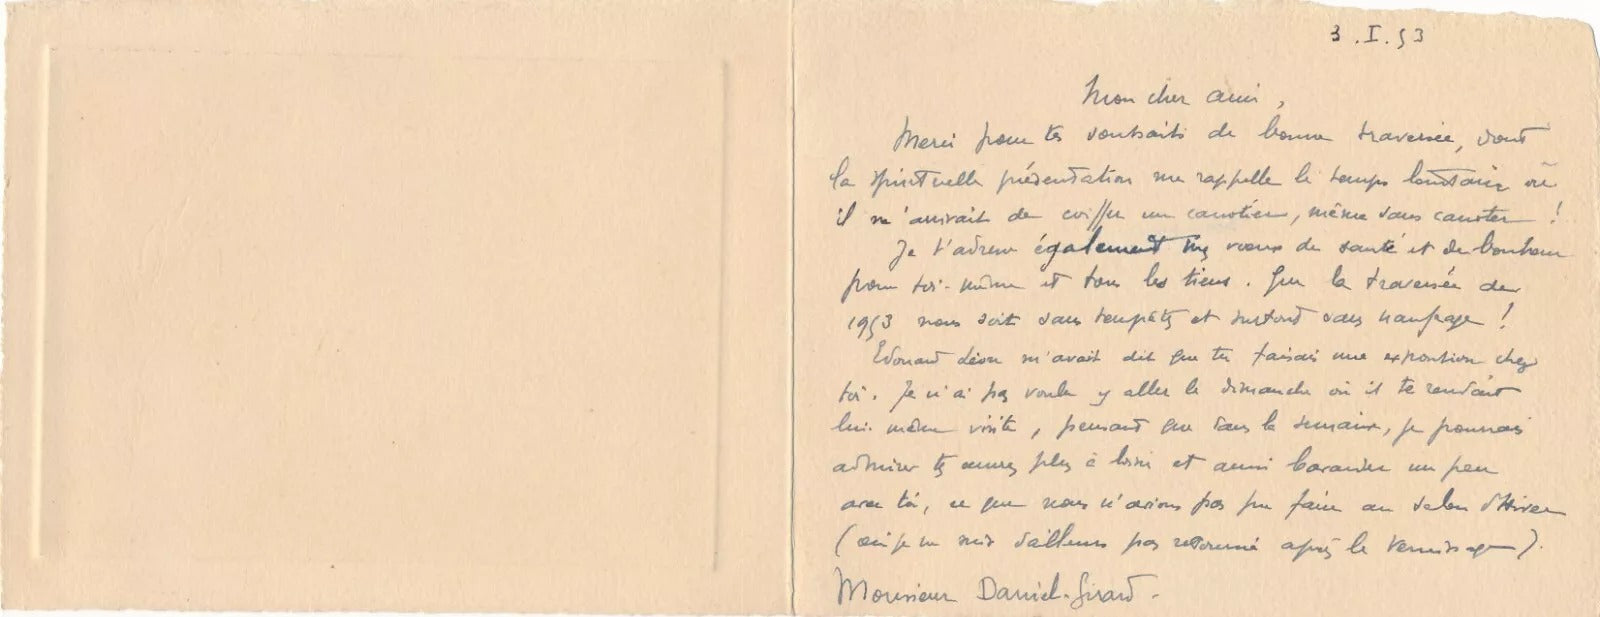 3.I.53
Mon cher ami,
Merci pour tes souhaits de bonne traversée, dont
la spirituelle présentation me rappelle le temps lointain où
il m'arrivait de coiffer un canotier, même sans canoter !
Je t'adresse également mes vœux de santé et de bonheur
pour toi-même et tous les tiens. Que la traversée de
1953 nous soit sans tempêtes et surtout sans naufrage !
Edouard Léon m'avait dit que tu faisais une exposition chez
toi. Je n'ai pas voulu y aller le dimanche où il te rendait
lui-même visite, pensant que dans la semaine, je pourrais
admirer tes œuvres plus à loisir et aussi bavarder un peu
avec toi, ce que nous n'avions pas pu faire au Salon d'Hiver
(où je ne suis d'ailleurs pas retourné après le vernissage).
Monsieur Daniel-Girard.